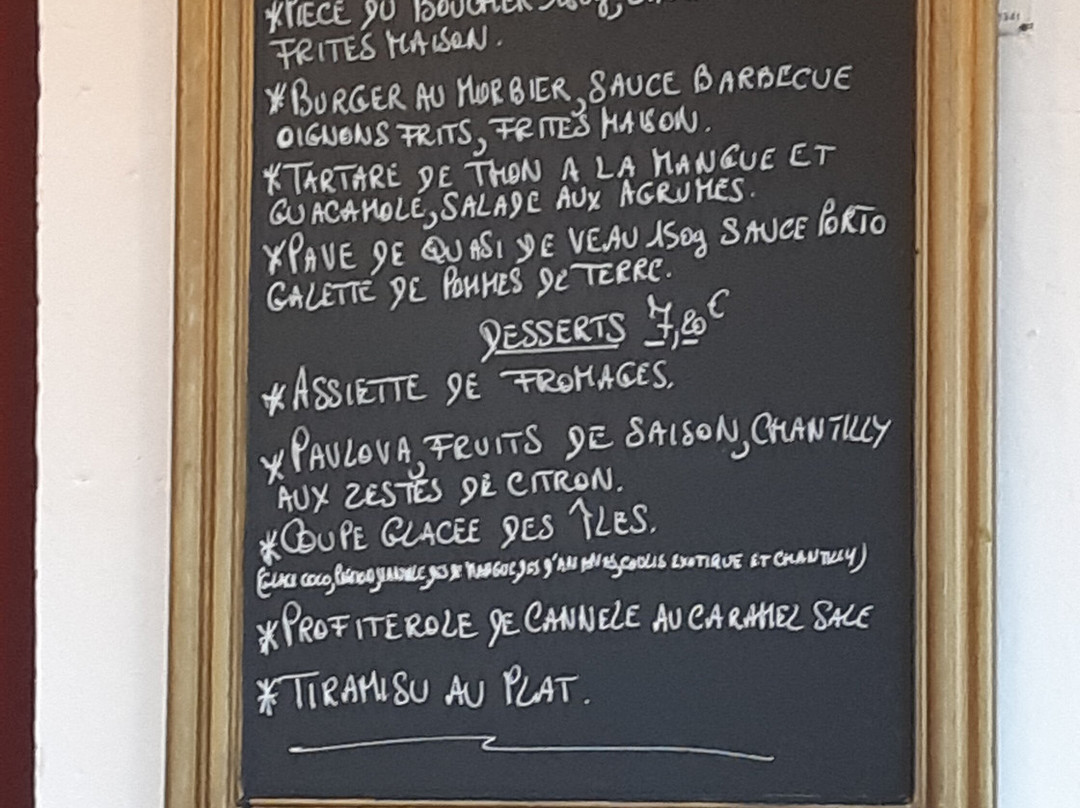 *PIECE DU BOUCHER
FRITES MAISON.
*BURGER AU MORBIER, SAUCE BARBECUE
OIGNONS FRITS, FRITES MAISON.
*TARTARE DE THON A LA MANGUE ET
GUACAMOLE, SALADE AUX AGRUMES.
*PAVE DE QUASI DE VEAU 150g SAUCE PORTO
GALETTE DE POMMES DE TERRE.
DESSERTS 7,20€
*ASSIETTE DE FROMAGES.
*PAULOVA, FRUITS DE SAISON, CHANTILLY
AUX ZESTES DE CITRON.
*COUPE GLACEE DES ÎLES.
(GLACE COCO, COULIS EXOTIQUE ET CHANTILLY)
*PROFITEROLE DE CANNELE AU CARAMEL SALE
*TIRAMISU AU PLAT.